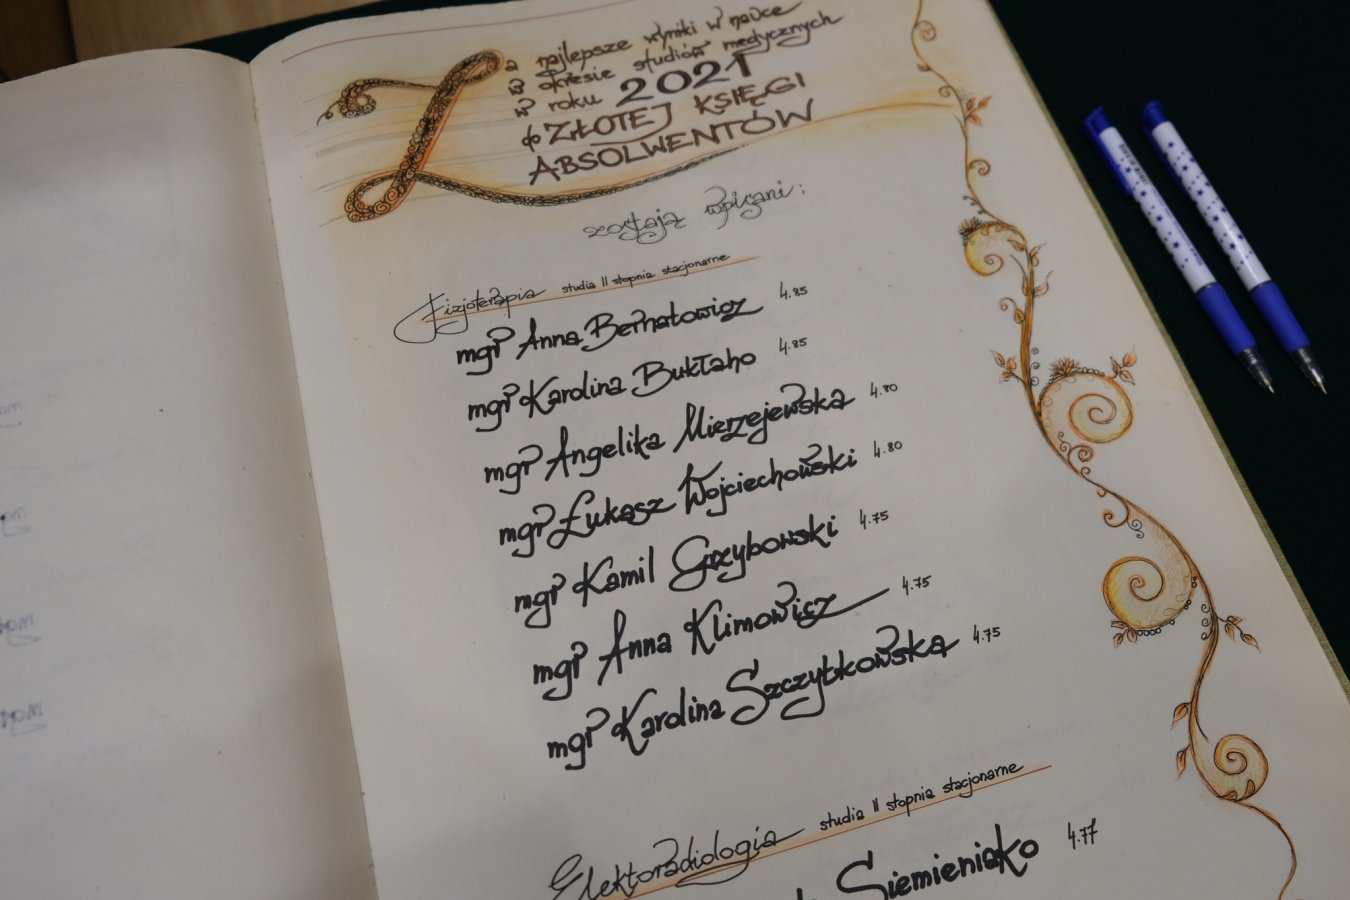 Za najlepsze wyniki w nauce
w okresie studiów medycznych
w roku 2021
do ZŁOTEJ KSIĘGI
ABSOLWENTÓW
zostają wpisani:
Fizjoterapia studia II stopnia stacjonarne
mgr Anna Bernatowicz 4.85
mgr Karolina Bukłaho 4.85
mgr Angelika Mierzejewska 4.80
mgr Łukasz Wojciechowski 4.80
mgr Kamil Grzybowski 4.75
mgr Anna Klimowicz 4.75
mgr Karolina Szczytkowska 4.75
Elektoradiologia studia II stopnia stacjonarne
Siemieniako 4.77